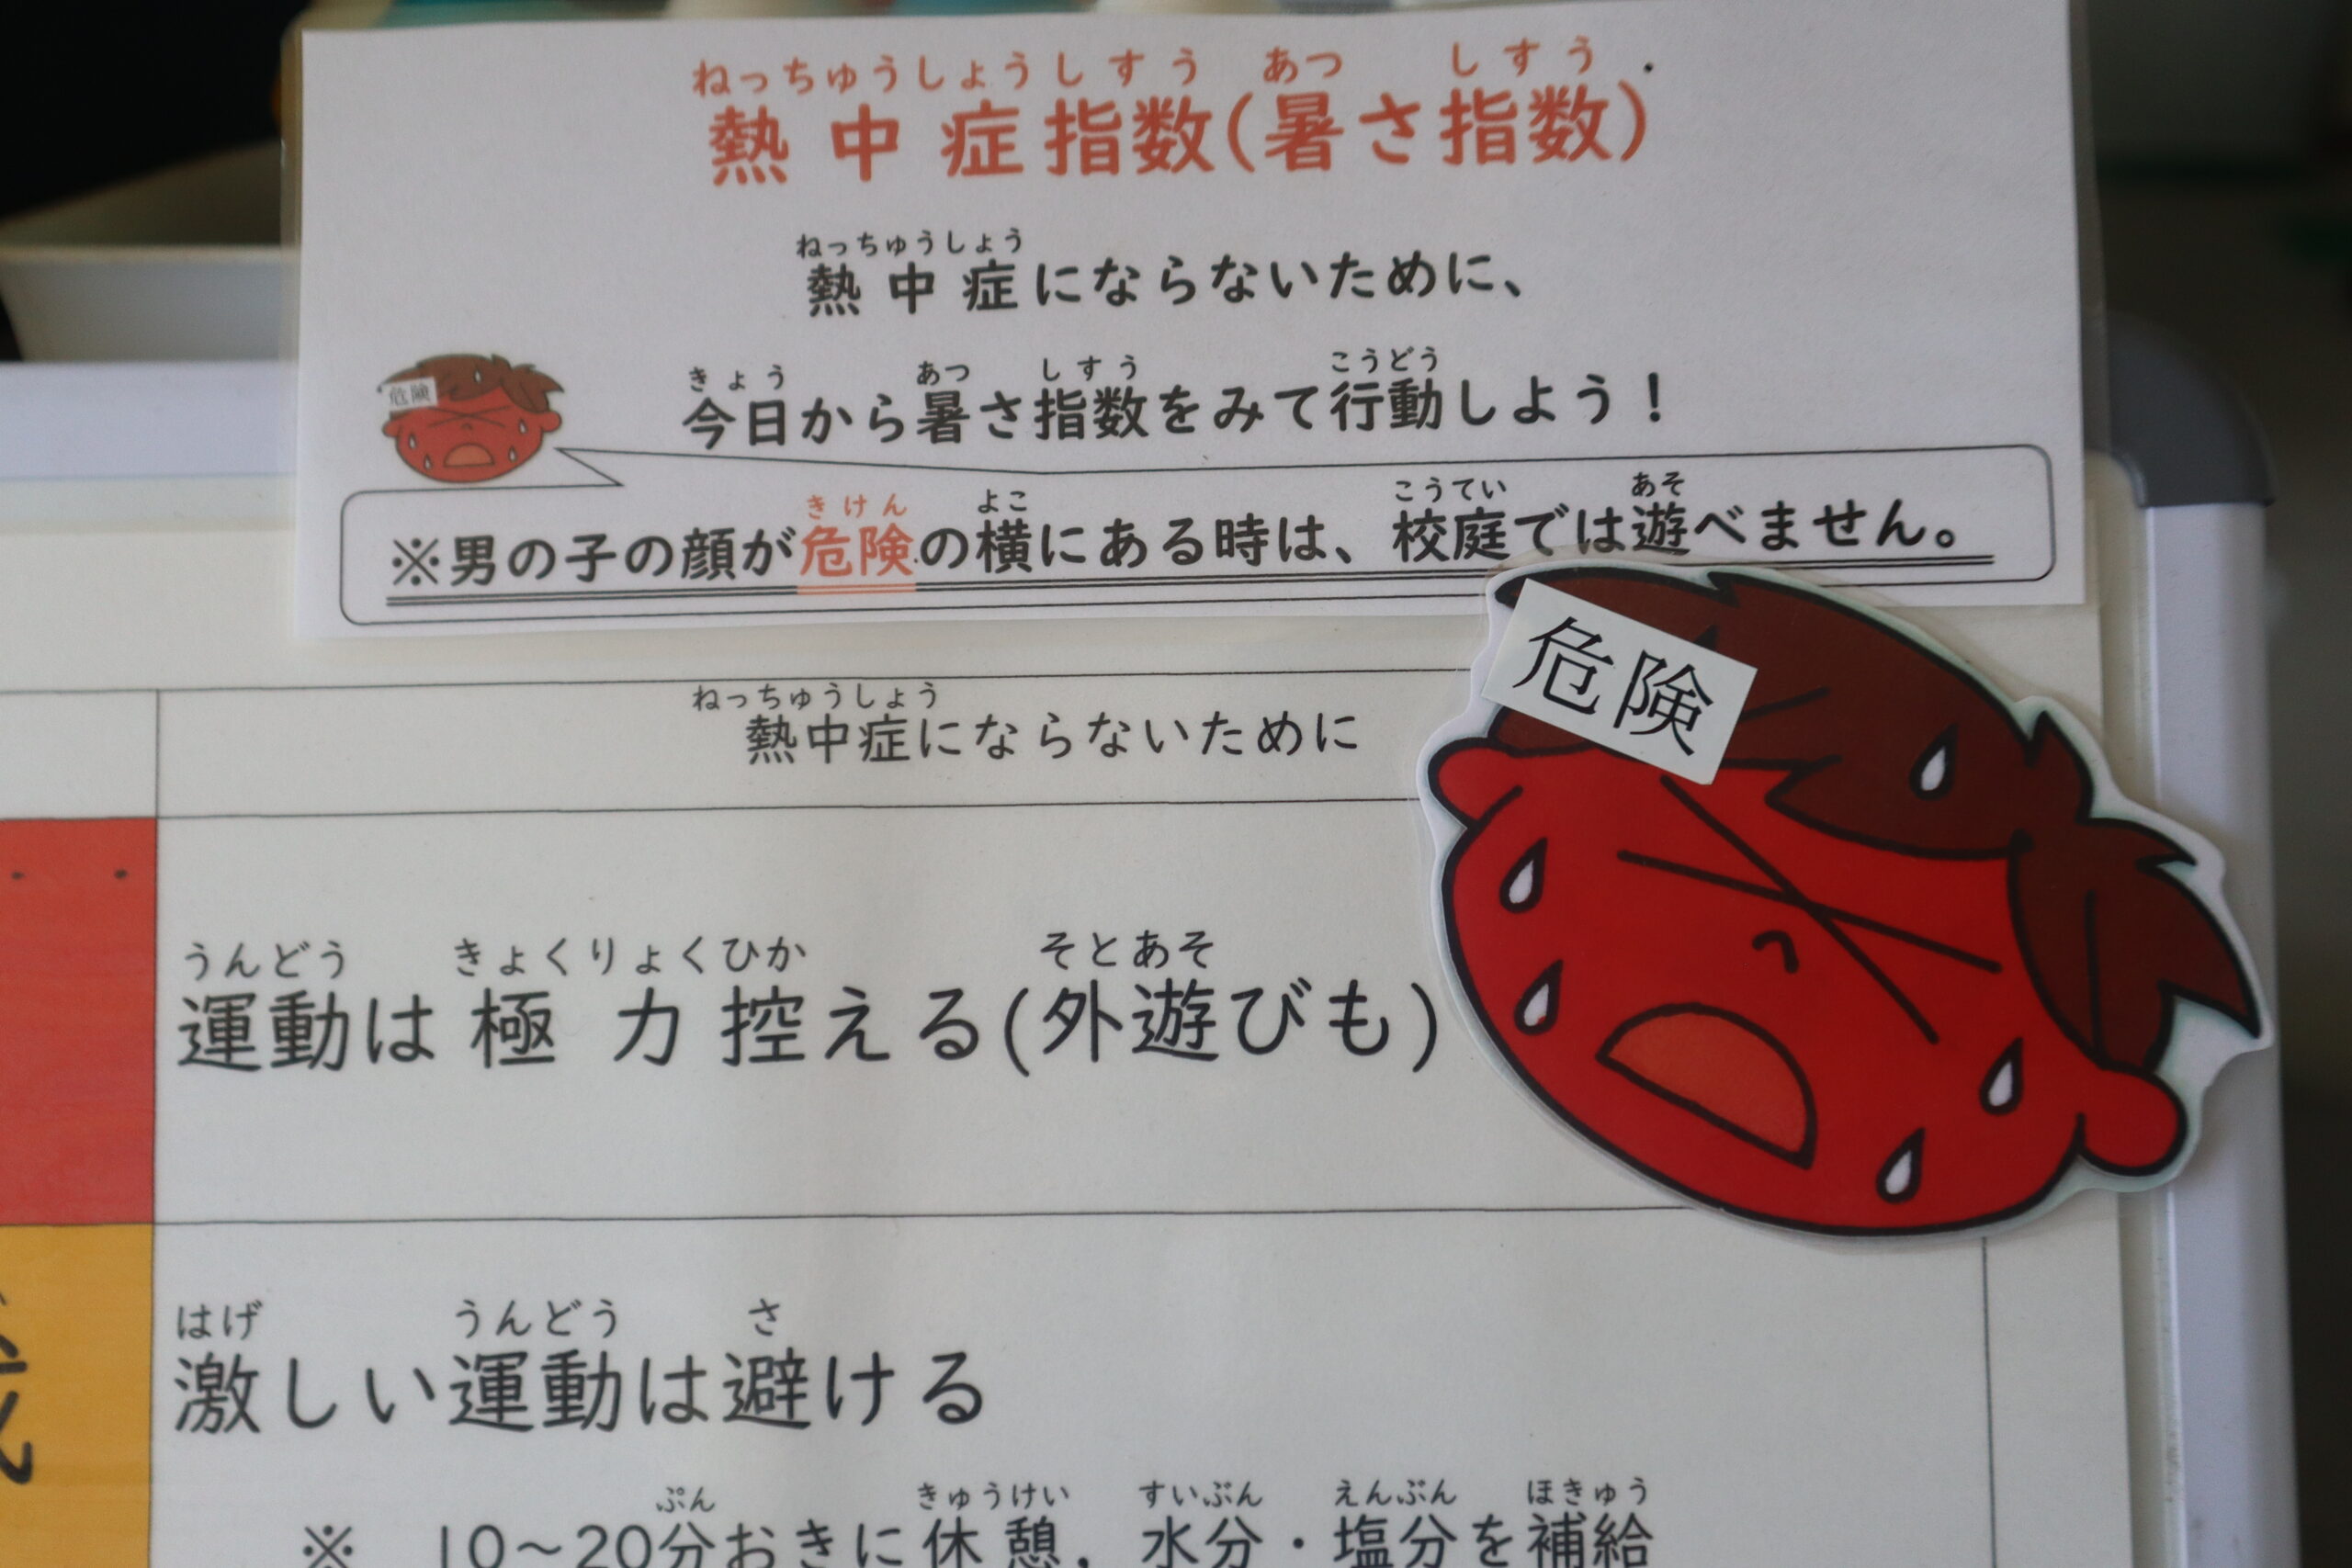 ねっちゅうしょうしすう あつ しすう
熱中症指数(暑さ指数)
ねっちゅうしょう
熱中症にならないために、
きょう あつ しすう こうどう
今日から暑さ指数をみて行動しよう!
危険
きけん よこ こうてい あそ
※男の子の顔が危険の横にある時は、校庭では遊べません。
危険
ねっちゅうしょう
熱中症にならないために
うんどう きょくりょくひか そとあそ
運動は極力控える(外遊びも)
はげ うんどう さ
激しい運動は避ける
ぷん きゅうけい すいぶん えんぶん ほきゅう
※ 10〜20分おきに休憩,水分・塩分を補給